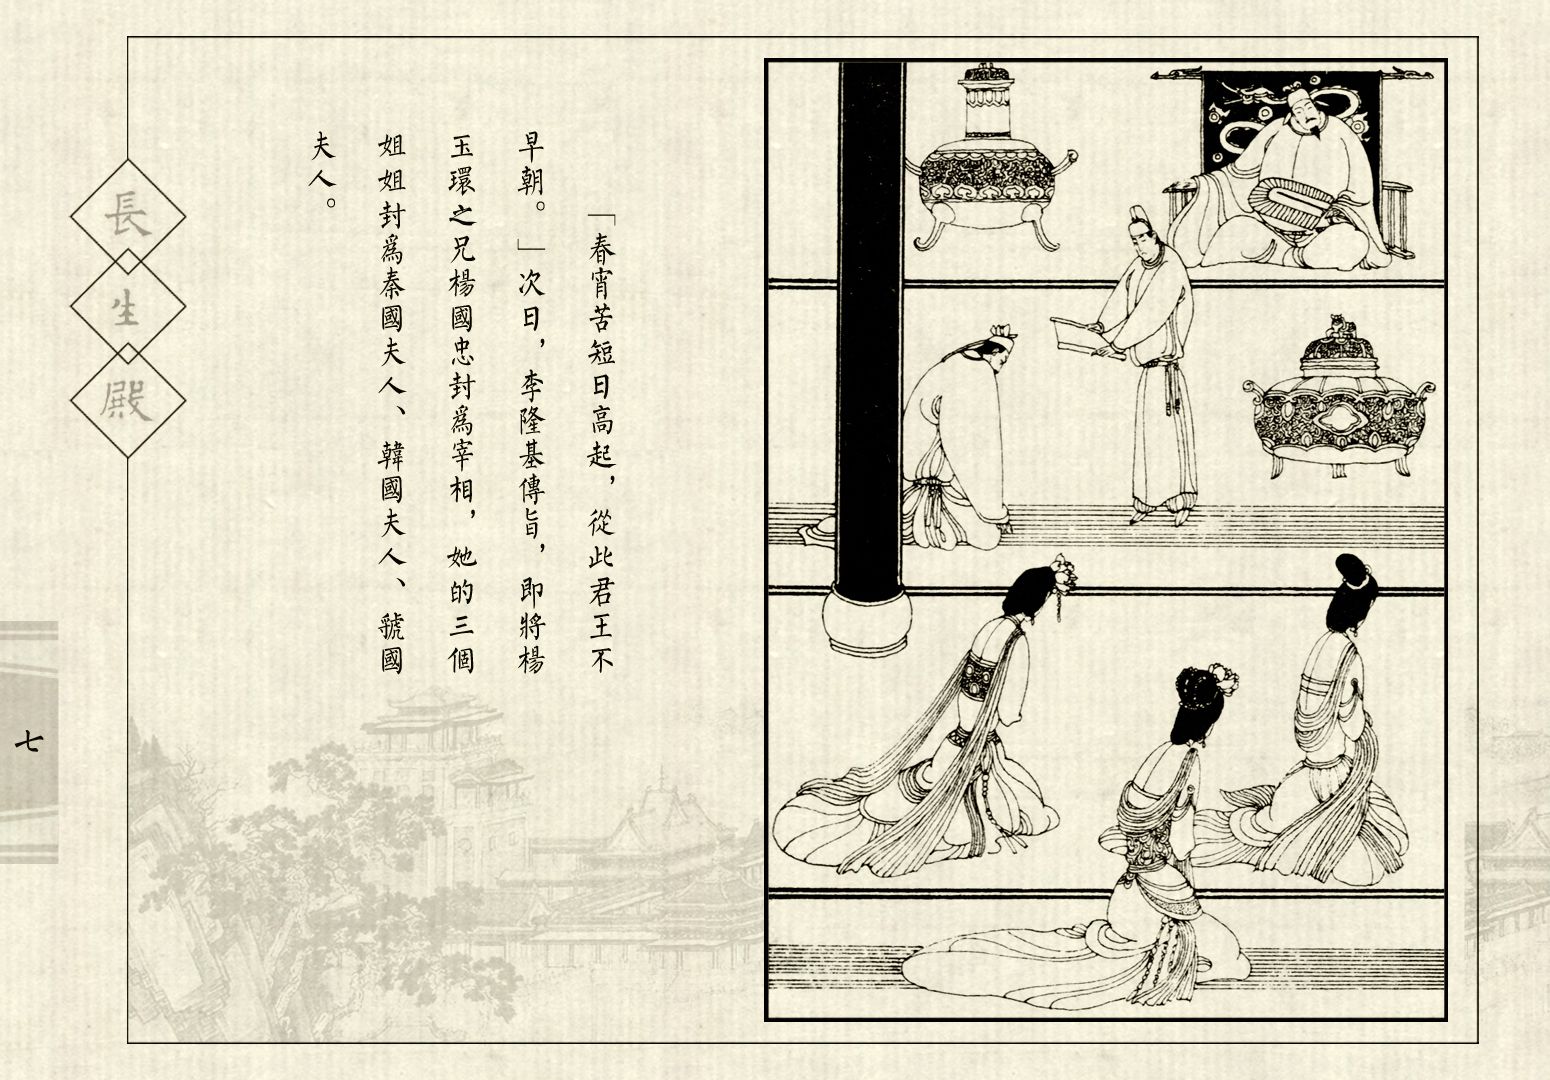 「春宵苦短日高起，從此君王不
早朝。」次日，李隆基傳旨，即將楊
玉環之兄楊國忠封爲宰相，她的三個
姐姐封爲秦國夫人、韓國夫人、虢國
夫人。
長生殿
七